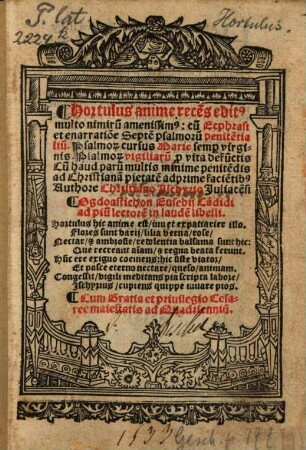 P. lat
2229 k
Hortulus.
Hortulus anime recēs edit9
multo nimirū amenissim9: cū Ecphrasi
et enarratiōe Septē psalmorū penitētia
liū. Psalmor̄ cursus Marie semp virgi
nis. Psalmor̄ vigiliarū p vita defūctis
Cū haud parū multis minime penitēdis
ad Christianā pietatē adprime faciētib9
Authore Christiano Ischyrio Juliacēsi
Ogdoastichon Eusebii Cādidi
ad piū lectorē in laudē libelli.
Hortulus hic anime est/ iuuet expatiarier illo.
Flores sunt varii/ lilia verna/ rose/
Nectar/ & ambrosie/ redolentia balsama sunt hic:
Que recreant aīam/ & regna beata ferunt.
Huc ere exiguo coemens/ hic siste viator/
Et pasce eterno nectare/ queso/ animam.
Congessit/ vigili meditans pia scripta labore/
Ischyrius/ cupiens quippe iuuare pios.
Cum Gratia et priuilegio Cesa
ree maiestatis ad Quadrienniū.
1533